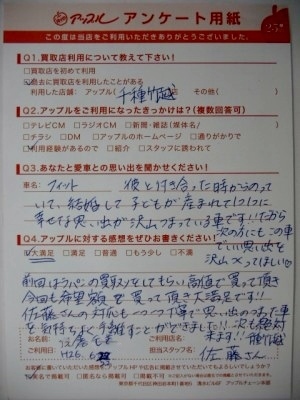 アップル アンケート用紙
この度は当店をご利用いただきありがとうございました。
Q1.買取店利用について教えて下さい!
□買取店を初めて利用
過去に買取店を利用したことがある
利用した店舗: アップル( 千種竹越 ) その他( )
Q2.アップルをご利用になったきっかけは?(複数回答可)
□テレビCM □ラジオCM □新聞・雑誌(媒体名/ )
□チラシ □DM □アップルのホームページ □通りがかりで
利用経験があるので □紹介 □スタッフに誘われて
Q3.あなたと愛車との思い出を聞かせください!
車名: フィット 彼と付き合った時からのって
いて、結婚して子どもが産まれて1つ1つに
幸せな思い出が沢山つまっている車です!!だから
次の方にもこの車
でいい思い出を
沢山つくってほしい
Q4.アップルに対する感想をぜひお書きください!
大満足 □満足 □普通 □もう少し □不満
前回はラパンの買取りをしてもらい高値で買って頂き
今回も希望額で買って頂き大満足です!!
佐藤さんの対応も
を気持ちよく手離すことができました!!次も絶対
来ます!!
お名前
ご利用日 H26.
ご利用店
担当スタッフ名 佐藤さん
お客様に書いていただいた感想を、アップルHPや広告に掲載させていただいてもよろしいでしょうか?
実名で掲載可 □匿名なら掲載可 □掲載不可